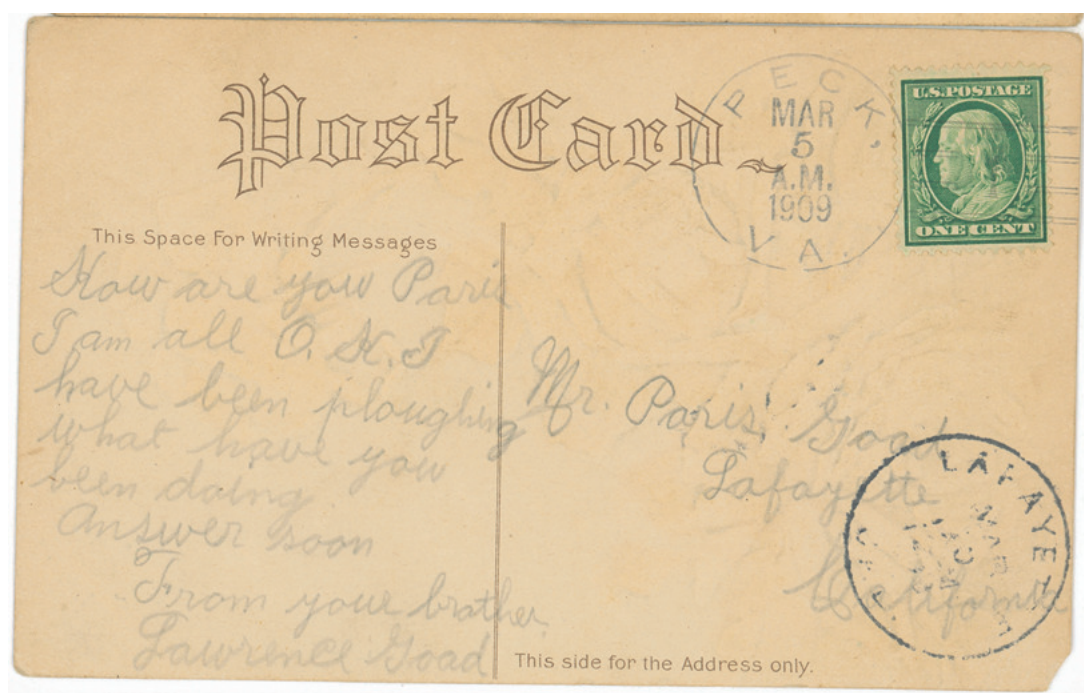 Post Card
PECK,
MAR
5
A.M.
1909
VA.
U.S. POSTAGE
ONE CENT
This Space For Writing Messages
How are you Paris
I am all O. K. I
have been ploughing
what have you
been doing
Answer soon
From your brother
Lawrence Goad
Mr. Paris, Goad
Lafayette
California
LAFAYETTE
MAR
CAL.
This side for the Address only.